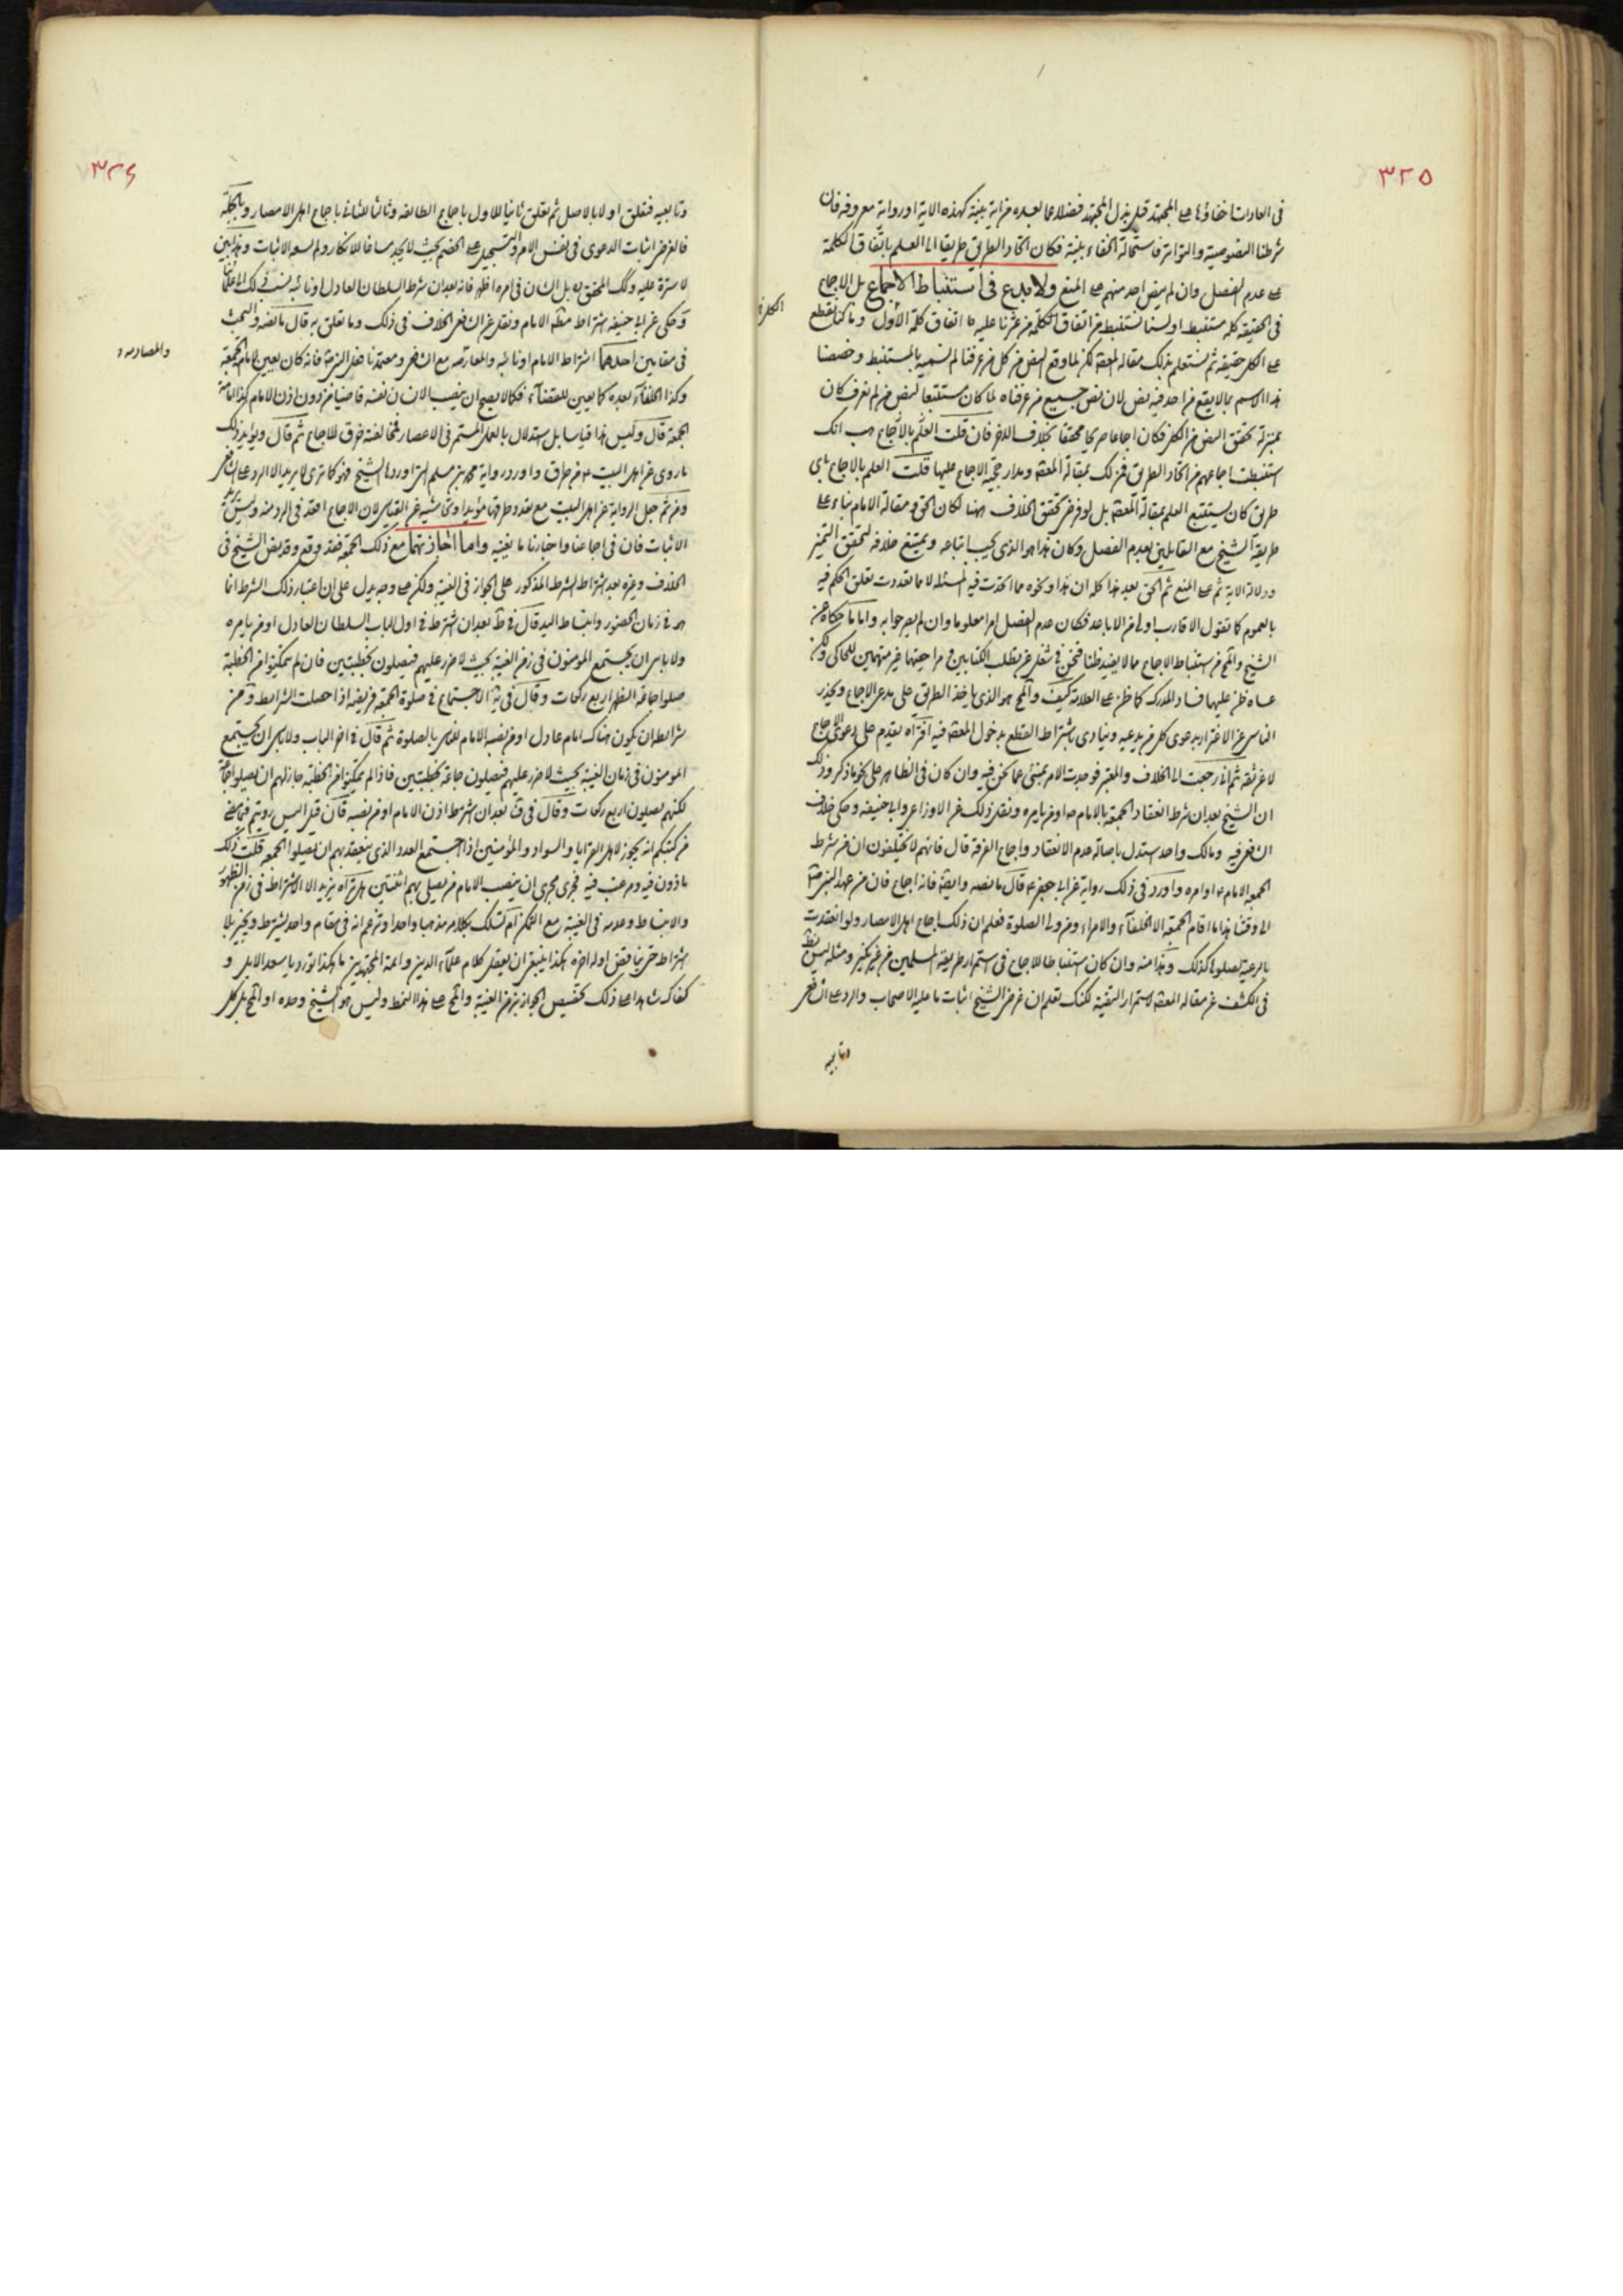 ٣٢٥
في العادات خفاؤها على المجتهد قبل بذل المجتهد فضلا عما بعده من اية بينة كهذه الاية او رواية معروفة فان
شرطنا النصوصية والتواتر فاستحالة الخفاء بينة فكان اتحاد الطريق طريقا الى العلم باتفاق الكلمة
على عدم الفصل وان لم ينص احد منهم على المنع ولا بدع في استنباط الاجماع بل الاجماع
في الحقيقة كله مستنبط اولسنا نستنبط من اتفاق الكلمة من عثرنا عليه اتفاق كلمة الاول وما كنا لنقطع
على الكل حقيقة ثم نستعلم بذلك مقالة المعصوم لكن لما وقع النص من كل من عرفنا لم نسميه بالمستنبط وخصصنا
هذا الاسم بما لا يقع من احد فيه نص لان نص جميع من عرفناه لما كان مستتبعا لنص من لم نعرف كان
بمنزلة تحقق النص من الكل فكان اجماعا صريحا محققا بخلاف الاخر فان قلت العلم بالاجماع هب انك
استنبطت اجماعهم من اتحاد الطريق فمن لك بمقالة المعصوم ومدار حجية الاجماع عليها قلت العلم بالاجماع باي
طريق كان يستتبع العلم بمقالة المعصوم بل لو فرض تحقق الخلاف ايضا لكان الحق في مقالة الامام بناء على
طريقة الشيخ مع القايلين بعدم الفصل وكان هذا هو الذي يجب اتباعه ويمتنع خلافه لتحقق التميز
ودلالة الاية ثم على المنع ثم الحق بعد هذا كله ان هذا ونحوه مما اتحدت فيه المسئلة لا مما تعددت تعلق الحكم فيه
بالعموم كما تقول الاقارب اولى من الاباعد فكان عدم الفصل امرا معلوما وان لم يصرحوا به واما ما حكاه عن
الشيخ والمح من استنباط الاجماع مما لا يفيد ظنا فنحن في شغل عن تطلب الكتابين في مراجعتها غير متهمين للحاكي ولكن
عساه ظن عليها فساد المدرك كما ظن على العلامة كيف والمح هو الذي ياخذ الطريق على مدعي الاجماع ويحذر
الناس عن الاغترار بدعوى كل من يدعيه وينادي باشتراط القطع بدخول المعصوم فيه افتراه يقدم على دعوى الاجماع
لا عن ثقة ثم اني رجعت الى الخلاف والمعتبر فوجدت الامر بمنئى عما نحن فيه وان كان في الظاهر على نحو ما ذكر وذلك
ان الشيخ بعد ان شرط انعقاد الجمعة بالامام او من يامره ونقل ذلك عن الاوزاعي وابي حنيفة وحكى خلاف
الشافعي فيه ومالك واحمد استدل باصالة عدم الانعقاد واجماع الفرقة قال فانهم لا يختلفون ان من شرط
الجمعة الامام او امره واورد في ذلك رواية عن ابي جعفر ع قال ما نصه وايضا فانه اجماع فان من عهد النبي ص
الى وقتنا هذا ما اقام الجمعة الا الخلفاء والامراء ومن ولي الصلوة فعلم ان ذلك اجماع اهل الامصار ولو انعقدت
بالرعية لصلوها كذلك وهذا منه وان كان استنباطا للاجماع في استمرار طريقة المسلمين من غير نكير ومثله ليس بنظر
في الكشف عن مقالة المعصوم لاستمرار التقية لكنك تعلم ان غرض الشيخ اثبات ما عليه الاصحاب والرد على الشافعي
وتابعيه
٣٢٦
وتابعيه فتعلق اولا بالاصل ثم تعلق ثانيا للاول باجماع الطائفة وثالثا للثاني باجماع اهل الامصار وبالجملة
فالغرض اثبات الدعوى في نفس الامر والتسجيل على الخصم بحيث لا يجد مساغا للانكار ولم يسعه الاثبات وهذا بين
لا سترة عليه وكك المحقق بل الشان في امره اظهر فانه بعد ان شرط السلطان العادل او نائبه نسب ذلك الى علمائنا
وحكى عن ابي حنيفة اشتراط مطلق الامام ونقل عن الشافعي الخلاف في ذلك وما تعلق به قال ما نصه والبحث
في مقامين احدهما اشتراط الامام او نائبه والمعارضة مع الشافعي ومعتمدنا فعل النبي ص فانه كان يعين لامام الجمعة
وكذا الخلفاء بعده كما يعين للقضاء فكما لا يصح ان ينصب الانسان نفسه قاضيا من دون اذن الامام كذا امامة
الجمعة قال وليس هذا قياسا بل استدلال بالعمل المستمر في الاعصار فمخالفته خرق للاجماع ثم قال ويؤيد ذلك
ما روي عن اهل البيت ع من طرق واورد رواية محمد بن مسلم التي اوردها الشيخ فهو كما ترى لا يريد الا الرد على الشافعي
ومن ثم جعل الرواية عن اهل البيت مع تعدد طرقها مؤيدا وتحاشيه عن القياس لان الاجماع اقعد في الرد منه وليس يريد
الاثبات فان في اجماعنا واخبارنا ما يغنيه واما اتحاذتهما مع ذلك الجمعة فقد وقع وقد نص الشيخ في
الخلاف وغيره بعد اشتراط الشرط المذكور على الجواز في الغيبة ولكن على وجه يدل على ان اعتبار ذلك الشرط انما
هو في زمان الحضور وانبساط اليد قال في ط بعد ان اشترط في اول الباب السلطان العادل او من يامره
ولا باس ان يجتمع المؤمنون في زمن الغيبة بحيث لا ضرر عليهم فيصلون بخطبتين فان لم يتمكنوا من الخطبة
صلوا جماعة الظهر اربع ركعات وقال في ية الاجتماع في صلوة الجمعة فريضة اذا حصلت الشرائط ومن
شرائطه ان يكون هناك امام عادل او من نصبه الامام للناس بالصلوة ثم قال في اخر الباب ولا باس ان يجتمع
المومنون في زمان الغيبة بحيث لا ضرر عليهم فيصلون جماعة بخطبتين فاذا لم يتمكنوا من الخطبة جاز لهم ان يصلوا جماعة
لكنهم يصلون اربع ركعات وقال في ف بعد ان اشترط اذن الامام او من نصبه فان قيل اليس رويتم فيما مضى
من كتبكم انه يجوز لاهل القرايا والسواد والمؤمنين اذا اجتمع العدد الذي ينعقد بهم ان يصلوا الجمعة قلت ذلك
ماذون فيه ومرغب فيه فجرى مجرى ان ينصب الامام من يصلي بهم انتهى هل تراه يريد الا الاشتراط في زمن الظهور
والانبساط وعدمه في الغيبة مع التمكن ام كسلك بكلامه مذهبا واحدا وتزعم انه في مقام واحد يشترط ويجيز بلا
اشتراط حتى يناقض اوله اخره هكذا ينبغي ان يعقل كلام علماء الدين وائمة المجتهدين ما هكذا تورد يا سعد الابل و
كفاك شاهدا على ذلك تخصيص الجواز بزمن الغيبة والمح على هذا النمط وليس هو الشيخ وحده او المح بل كل